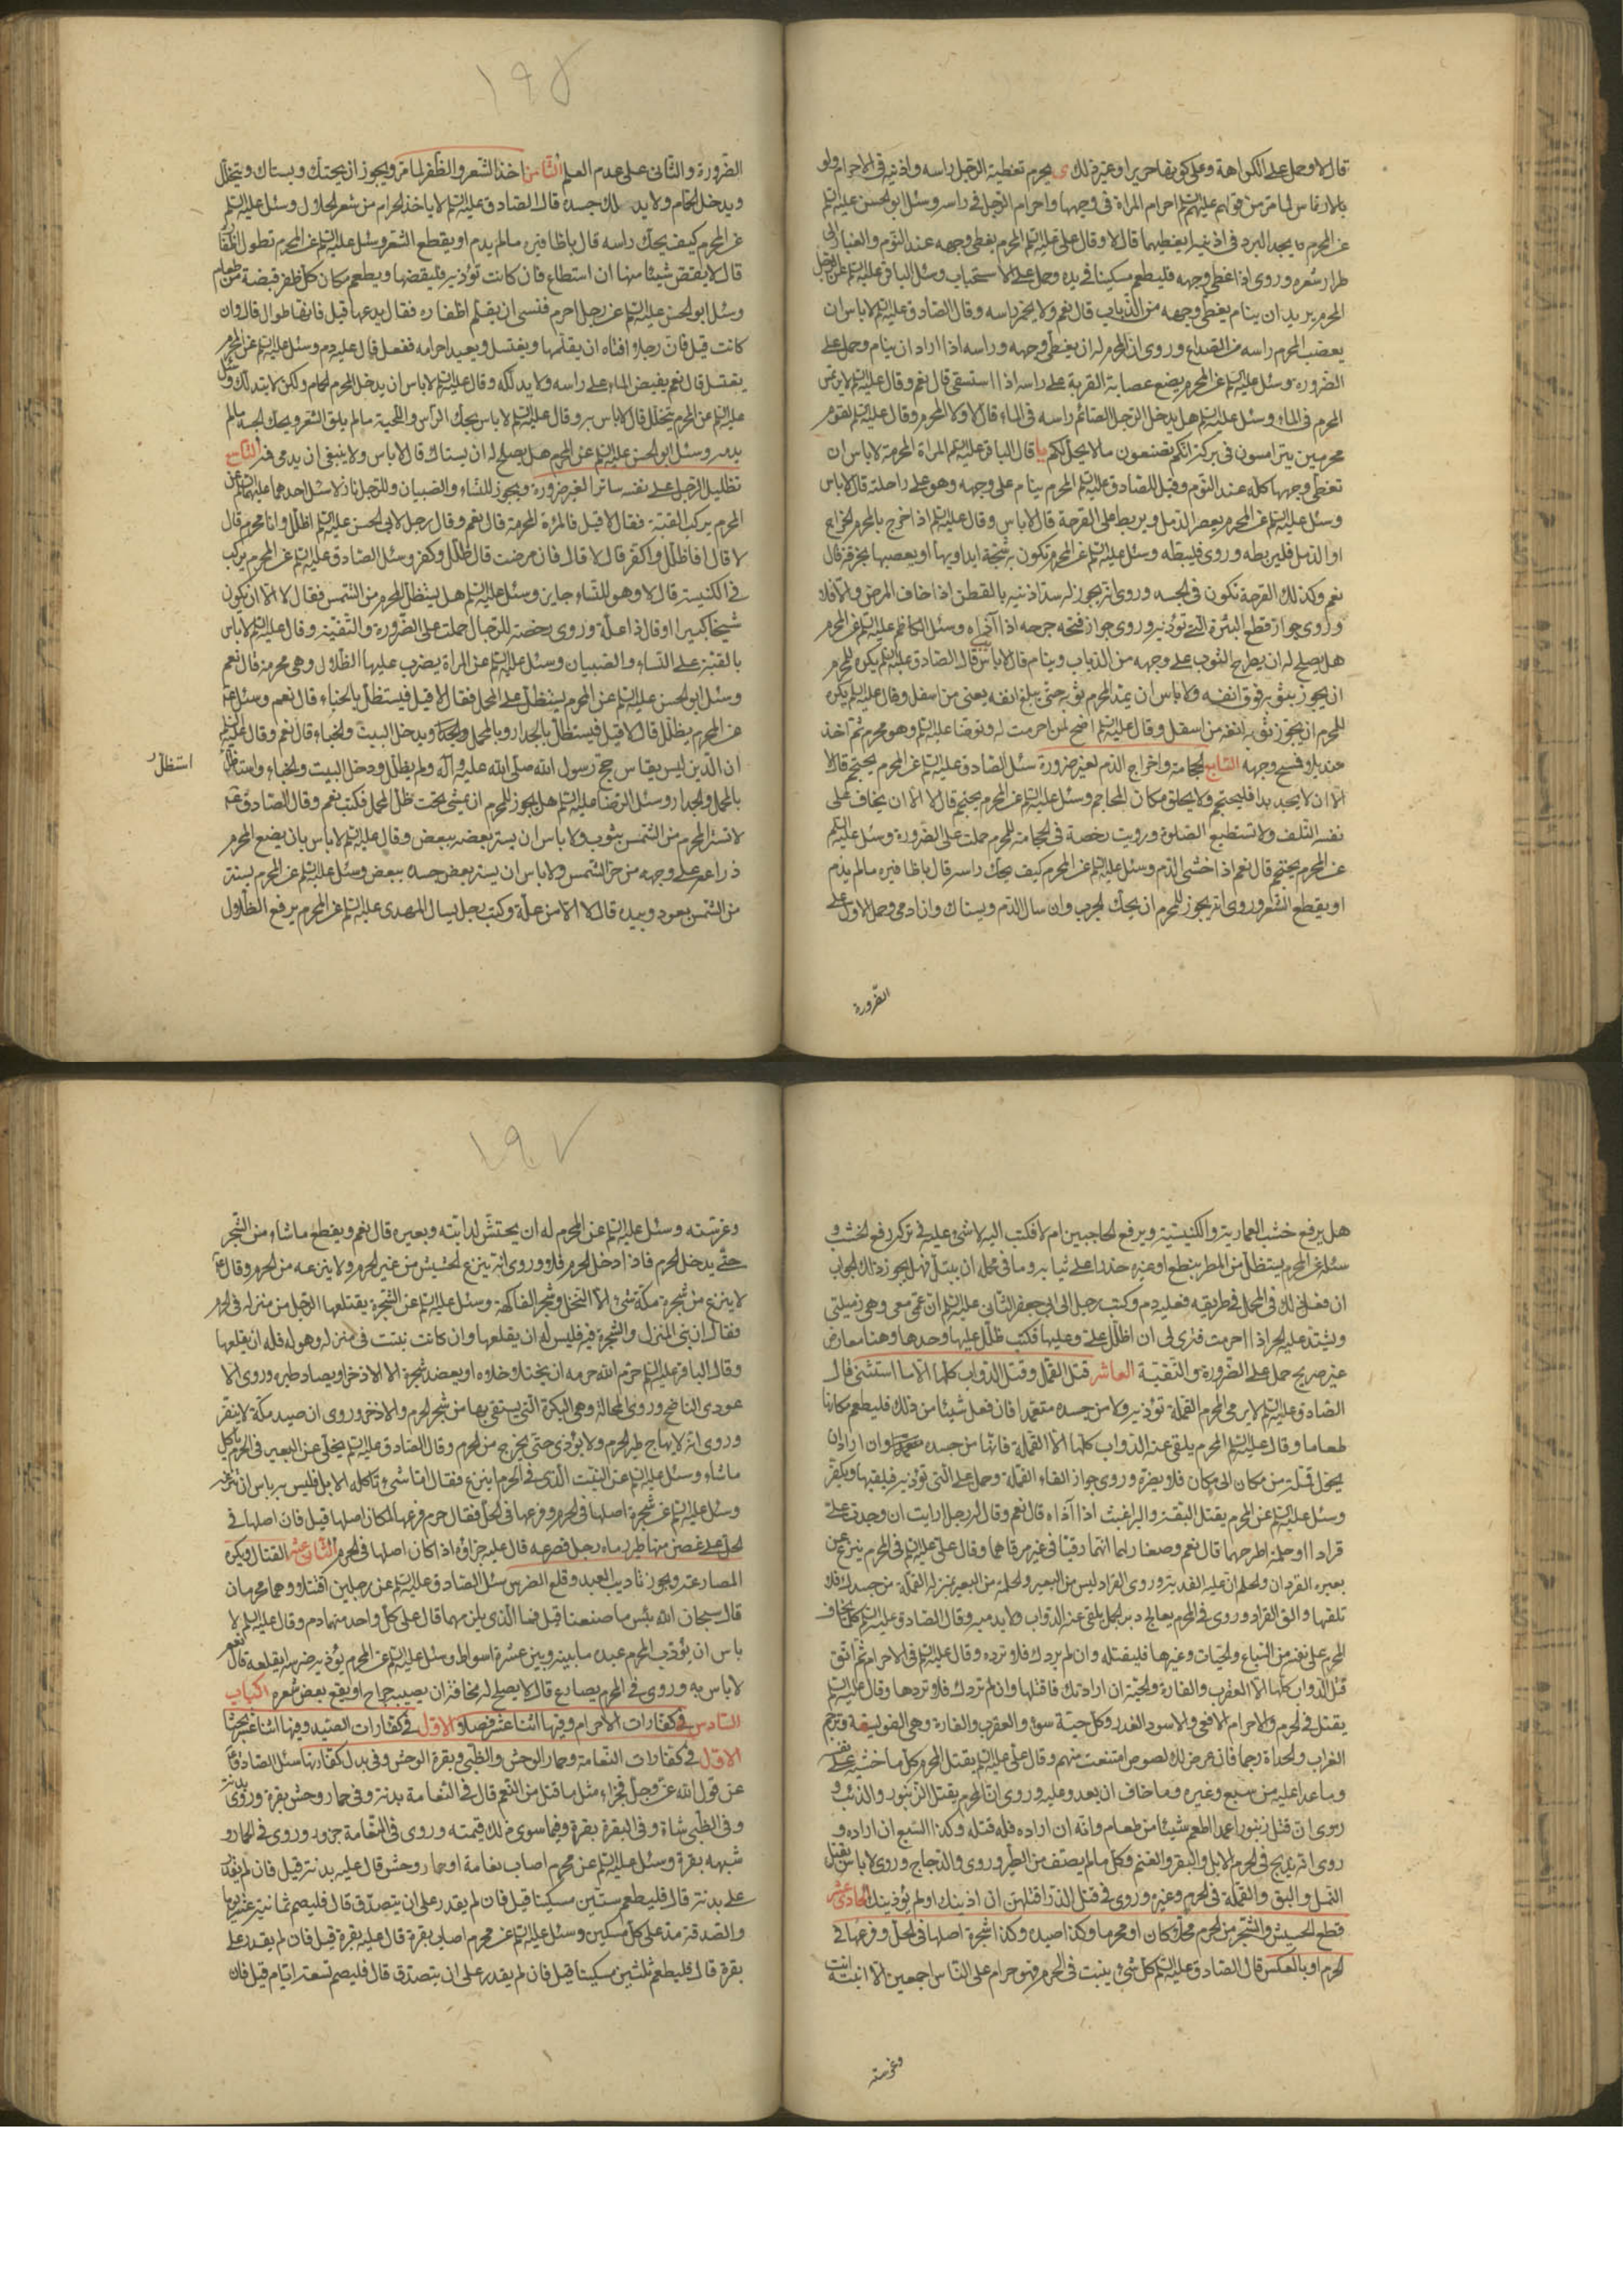 قال لا وحمل على الكراهة وعلى كونها حريرا وغير ذلك ى يحرم تغطية الرجل راسه واذنيه في الاحرام ولو
بالارتماس لما مر من قولهم عليهم السلم احرام المراة في وجهها واحرام الرجل في راسه وسئل ابو الحسن عليه السلم
عن المحرم يجد البرد في اذنيه يغطيهما قال لا وقال على عليه السلم المحرم يغطى وجهه عند النوم والغبار الى
طرار شعره وروى اذا غطى وجهه فليطعم مسكينا في يده وحمل على الاستحباب وسئل الباقر عليه السلم عن الرجل
المحرم يريد ان ينام يغطى وجهه من الذباب قال نعم ولا يخمر راسه وقال الصادق عليه السلم لا باس ان
يعصب المحرم راسه من الصداع وروى ان المحرم له ان يغطى وجهه وراسه اذا اراد ان ينام وحمل على
الضرورة وسئل عليه السلم عن المحرم يضع عصابة القربة على راسه اذا استسقى قال نعم وقال عليه السلم لا يرتمس
المحرم في الماء وسئل عليه السلم هل يدخل الرجل الصائم راسه في الماء قال لا ولا المحرم وقال عليه السلم لقوم
محرمين يترامسون في بركة انكم تصنعون ما لا يحل لكم يا قال الباقر عليه السلم المراة المحرمة لا باس ان
تغطى وجهها كله عند النوم وقيل للصادق عليه السلم المحرم ينام على وجهه وهو على راحلته قال لا باس
وسئل عليه السلم عن المحرم يعصر الدمل ويربط على القرحة قال لا باس وقال عليه السلم اذا خرج بالمحرم الخراج
او الدمل فليربطه وروى فليبطه وسئل عليه السلم عن المحرم تكون به شجة ايداويها او يعصبها بخرقة قال
نعم وكذلك القرحة تكون في الجسد وروى انه يجوز له سد اذنيه بالقطن اذا خاف المرض والا فلا
وروى جواز قطع البثرة التي تؤذيه وروى جواز فتحه جرحه اذا آذاه وسئل الكاظم عليه السلم عن المحرم
هل يصلح له ان يطرح الثوب على وجهه من الذباب وينام قال لا باس قال الصادق عليه السلم يكره للمحرم
ان يجوز بثوبه فوق انفه ولا باس ان يمد المحرم ثوبه حتى يبلغ انفه يعنى من اسفل وقال عليه السلم يكره
للمحرم ان يجوز ثوبه انفه من اسفل وقال عليه السلم اضح لمن احرمت له وتوضا عليه السلم وهو محرم ثم اخذ
منديلا فمسح وجهه السابع الحجامة واخراج الدم لغير ضرورة سئل الصادق عليه السلم عن المحرم يحتجم قال لا
الا ان لا يجد بدا فليحتجم ولا يحلق مكان المحاجم وسئل عليه السلم عن المحرم يحتجم قال لا الا ان يخاف على
نفسه التلف ولا تستطيع الصلوة ورويت رخصة في الحجامة للمحرم حملت على الضرورة وسئل عليه السلم
عن المحرم يحتجم قال نعم اذا خشى الدم وسئل عليه السلم عن المحرم كيف يحك راسه قال باظافيره ما لم يدم
او يقطع الشعر وروى انه يجوز للمحرم ان يحك الجرب وان سال الدم ويستاك وان ادمى وحمل الاول على
الضرورة
١٩٨
الضرورة والثانى على عدم العلم الثامن اخذ الشعر والظفر لما مر ويجوز ان يحتك ويستاك ويتخلل
ويدخل الحمام ولا يدلك جسده قال الصادق عليه السلم لا ياخذ الحرام من شعر الحلال وسئل عليه السلم
عن المحرم كيف يحك راسه قال باظافيره ما لم يدم او يقطع الشعر وسئل عليه السلم عن المحرم تطول اظفاره
قال لا يقص شيئا منها ان استطاع فان كانت تؤذيه فليقصها ويطعم مكان كل ظفر قبضة من طعام
وسئل ابو الحسن عليه السلم عن رجل احرم فنسى ان يقلم اظفاره فقال يدعها قيل فانها طوال قال وان
كانت قيل فان رجلا افتاه ان يقلمها ويغتسل ويعيد احرامه ففعل قال عليه دم وسئل عليه السلم عن المحرم
يغتسل قال نعم يفيض الماء على راسه ولا يدلكه وقال عليه السلم لا باس ان يدخل المحرم الحمام ولكن لا يتدلك وسئل
عليه السلم عن المحرم يتخلل قال لا باس به وقال عليه السلم لا باس بحك الراس واللحية ما لم يلق الشعر ويحك الجسد ما لم
يدمه وسئل ابو الحسن عليه السلم عن المحرم هل يصلح له ان يستاك قال لا باس ولا ينبغى ان يدمى فمه التاسع
تظليل الرجل على نفسه سائرا لغير ضرورة ويجوز للنساء والصبيان وللرجل نازلا سئل احدهما عليهما السلم عن
المحرم يركب القبة فقال لا قيل فالمرئة المحرمة قال نعم وقال رجل لابى الحسن عليه السلم اظلل وانا محرم قال
لا قال افاظلل واكفر قال لا قال فان مرضت قال ظلل وكفر وسئل الصادق عليه السلم عن المحرم يركب
في الكنيسة قال لا وهو للنساء جايز وسئل عليه السلم هل يستظل المحرم من الشمس فقال لا الا ان يكون
شيخا كبيرا او قال ذا علة وروى رخصة للرجال حملت على الضرورة والتقية وقال عليه السلم لا باس
بالقبة على النساء والصبيان وسئل عليه السلم عن المراة يضرب عليها الظلال وهى محرمة قال نعم
وسئل ابو الحسن عليه السلم عن المحرم يستظل على المحمل فقال لا قيل فيستظل بالخباء قال نعم وسئل
عن المحرم يظلل قال لا قيل فيستظل بالجدار وبالمحمل ويدخل البيت والخباء قال نعم وقال عليه السلم
ان الدين ليس يقاس حج رسول الله صلى الله عليه وآله ولم يظلل ودخل البيت والخباء واستظل
استظل
بالمحمل والجدار وسئل الرضا عليه السلم هل يجوز للمحرم ان يمشى تحت ظل المحمل فكتب نعم وقال الصادق
لا تستر المحرم من الشمس بثوب ولا باس ان يستر بعضه ببعض وقال عليه السلم لا باس بان يضع المحرم
ذراعه على وجهه من حر الشمس ولا باس ان يستر بعض جسده ببعض وسئل عليه السلم عن المحرم يستتر
من الشمس بعود وبيده قال لا الا من علة وكتب رجل يسال المهدى عليه السلم عن المحرم يرفع الظلال
هل يرفع خشب العمارية والكنيسة ويرفع الجناحين ام لا فكتب اليه لا شئ عليه في تركه رفع الخشب و
سئل عن المحرم يستظل من المطر بنطع او غيره حذرا على ثيابه وما في محمله ان يبتل فهل يجوز ذلك الجواب
ان فعل ذلك في المحمل في طريقه فعليه دم وكتب رجل الى ابى جعفر الثانى عليه السلم ان عمتى معى وهى زميلتى
ويشتد عليها الحر اذا احرمت فترى لى ان اظلل على وعليها فكتب ظلل عليها وحدها وهنا معارض
غير صريح حمل على الضرورة والتقية العاشر قتل القمل وقتل الدواب كلها الا ما استثنى قال
الصادق عليه السلم لا يرمى المحرم القملة تؤذيه ولا من جسده متعمدا فان فعل شيئا من ذلك فليطعم مكانها
طعاما وقال عليه السلم المحرم يلقى عنه الدواب كلها الا القملة فانها من جسده وان اراد ان
يحول قملة من مكان الى مكان فلا يضره وروى جواز القاء القملة وحمل على التى تؤذيه فيلقيها ويكفر
وسئل عليه السلم عن المحرم يقتل البقة والبراغيث اذا آذاه قال نعم وقال له رجل ارايت ان وجدت على
قرادا او حلمة اطرحهما قال نعم وصغار لهما انهما رقيا في غير مرقاهما وقال على عليه السلم في المحرم ينزع عن
بعيره القردان والحلم ان عليه الفدية وروى القراد ليس من البعير والحلمة من البعير بمنزلة القملة من جسدك فلا
تلقها والق القراد وروى في المحرم يعالج دبر الجمل يلقى عنه الدواب ولا يدميه وقال الصادق عليه السلم كلما يخاف
المحرم على نفسه من السباع والحيات وغيرها فليقتله وان لم يردك فلا ترده وقال عليه السلم في الاحرام ثم اتق
قتل الدواب كلها الا العقرب والفارة والحية ان ارادتك فاقتلها وان لم تردك فلا تردها وقال عليه السلم
يقتل في الحرم والاحرام الافعى والاسود الغدر وكل حية سوء والعقرب والفارة وهى الفويسقة وترجم
الغراب والحداة رجما فان عرض لك لصوص امتنعت منهم وقال على عليه السلم يقتل المحرم كل ما خشيه على نفسه
وما عدا عليه من سبع وغيره وما خاف ان يعدو عليه وروى ان المحرم يقتل الزنبور والذئب و
روى ان قتل زنبورا عمدا اطعم شيئا من طعام وانه ان اراده فله قتله وكذا السبع ان اراده و
روى انه يذبح في الحرم الابل والبقر والغنم وكل ما لم يصف من الطير وروى والدجاج وروى لا باس بقتل
النمل والبق والقملة في الحرم وغيره وروى في قتل الذر اقتلهن ان اذينك او لم يؤذينك الحادى عشر
قطع الحشيش والشجر من الحرم محلا كان او محرما وكذا صيده وكذا شجرة اصلها في الحل وفرعها في
الحرم او بالعكس قال الصادق عليه السلم كل شئ ينبت في الحرم فهو حرام على الناس اجمعين الا ما انبته انت
وغرسته
١٩٧
وغرسته وسئل عليه السلم عن المحرم له ان يحتش لدابته وبعيره قال نعم ويقطع ما شاء من الشجر
حتى يدخل الحرم فاذا دخل الحرم فلا وروى انه ينزع الحشيش من غير الحرم ولا ينزعه من الحرم وقال
لا ينزع من شجرة مكة شئ الا النخل وشجر الفاكهة وسئل عليه السلم عن الشجرة يقتلعها الرجل من منزله في الحرم
فقال ان بنى المنزل والشجرة فيه فليس له ان يقلعها وان كانت نبتت في منزله وهو له فله ان يقلعها
وقال الباقر عليه السلم حرم الله حرمه ان يختلا خلاه او يعضد شجره الا الاذخر او يصاد طيره وروى الا
عودى الناضح وروى المحالة وهى البكرة التى يستقى بها من شجر الحرم والاذخر وروى ان صيد مكة لا ينفر
وروى انه لا يهاج طير الحرم ولا يؤذى حتى يخرج من الحرم وقال الصادق عليه السلم يخلى عن البعير في الحرم ياكل
ما شاء وسئل عليه السلم عن النبت الذى في الحرم اينزع فقال اما شئ تاكله الابل فليس به باس ان تنزعه
وسئل عليه السلم عن شجرة اصلها في الحرم وفرعها في الحل فقال حرم فرعها لمكان اصلها قيل فان اصلها في
الحل على غصن منها طير رماه رجل فصرعه قال عليه جزاؤه اذا كان اصلها في الحرم الثانى عشر القتال ويكره
المصارعة ويجوز تاديب العبد وقلع الضرس سئل الصادق عليه السلم عن رجلين اقتتلا وهما محرمان
قال سبحان الله بئس ما صنعا قيل فما الذى يلزمهما قال على كل واحد منهما دم وقال عليه السلم لا
باس ان يؤدب المحرم عبده ما بينه وبين عشرة اسواط وسئل عليه السلم عن المحرم يؤذيه ضرسه ايقلعه قال نعم
لا باس به وروى في المحرم يصارع قال لا يصلح له مخافة ان يصيبه جراح او يقع بعض شعره الباب
السادس في كفارات الاحرام وفيها اثنا عشر فصلا الاول في كفارات الصيد وفيها اثنا عشر بحثا
الاول في كفارات النعامة وحمار الوحش والظبى وبقرة الوحش وفى بدل كفاراتها سئل الصادق
عن قول الله عز وجل فجزاء مثل ما قتل من النعم قال في النعامة بدنة وفى حمار وحش بقرة وروى بدنة
وفى الظبى شاة وفى البقرة بقرة وفيما سوى ذلك قيمته وروى في النعامة جزور وروى في الحمار و
شبهه بقرة وسئل عليه السلم عن محرم اصاب نعامة او حمار وحش قال عليه بدنة قيل فان لم يقدر
على بدنة قال فليطعم ستين مسكينا قيل فان لم يقدر على ان يتصدق قال فليصم ثمانية عشر يوما
والصدقة مد على كل مسكين وسئل عليه السلم عن محرم اصاب بقرة قال عليه بقرة قيل فان لم يقدر على
بقرة قال فليطعم ثلثين مسكينا قيل فان لم يقدر على ان يتصدق قال فليصم تسعة ايام قيل فان